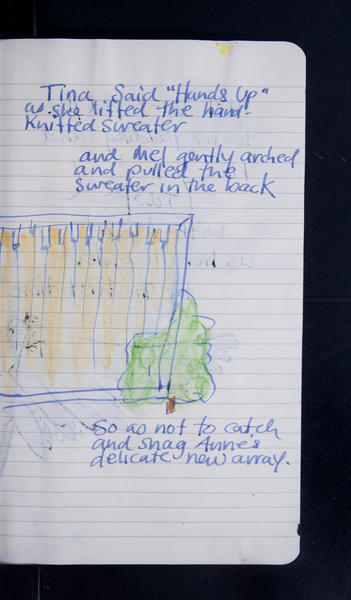 Tina Said "Hands Up"
as she lifted the hand-
Knitted Sweater
and Mel gently arched
and pulled the
Sweater in the back
So as not to catch
and snag Anne's
delicate new array.